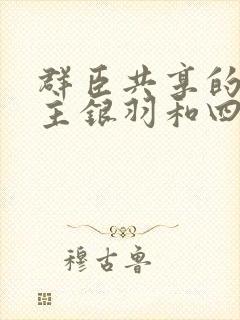 群臣共享的
主银羽和四
穆古鲁